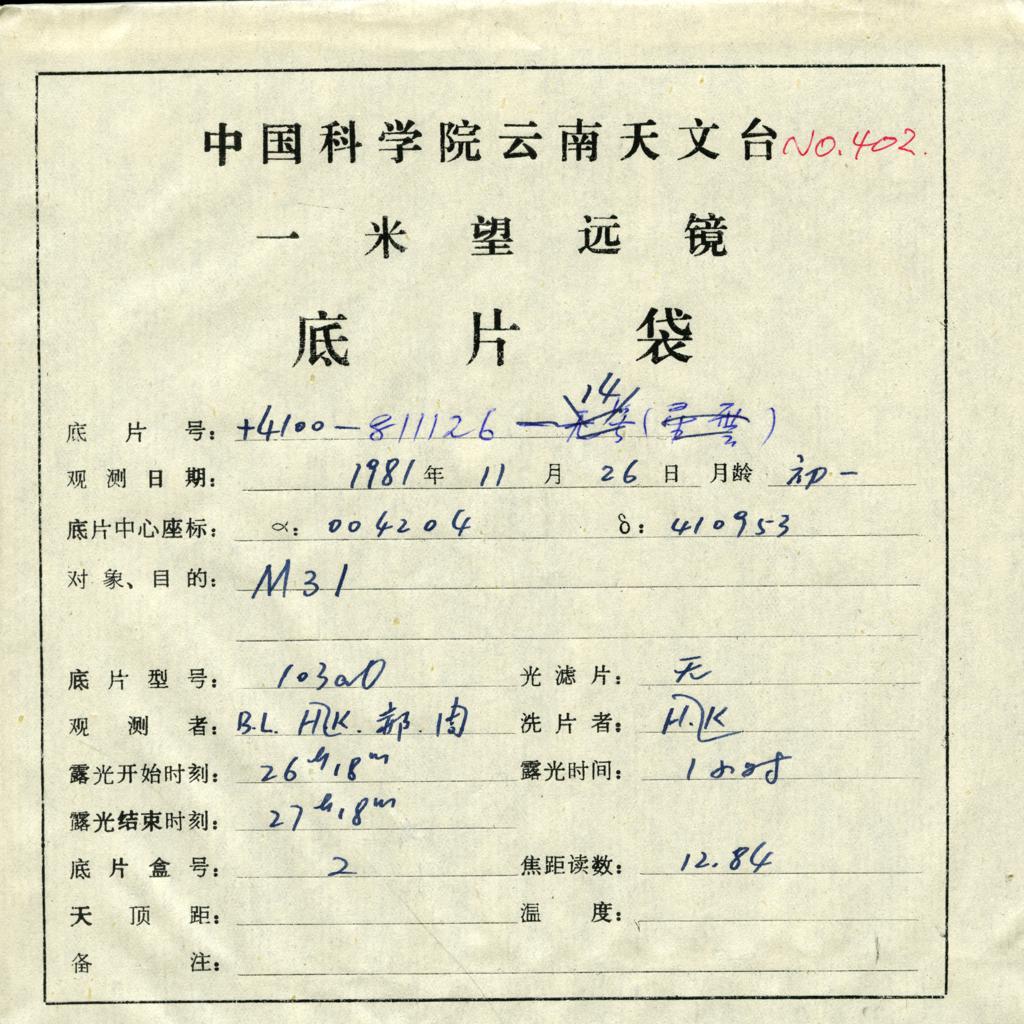 中国科学院云南天文台 No.402.
一米望远镜
底片袋
底片号: +4100-811126-14
观测日期: 1981年11月26日 月龄 初一
底片中心座标: α: 004204 δ: 410953
对象、目的: M31
底片型号: 103aO 光滤片: 无
观测者: B.L. H.L.K. 郝. 周 洗片者: H.L.K
露光开始时刻: 26h18m 露光时间: 1小时
露光结束时刻: 27h18m
底片盒号: 2 焦距读数: 12.84
天顶距: 温度:
备注: